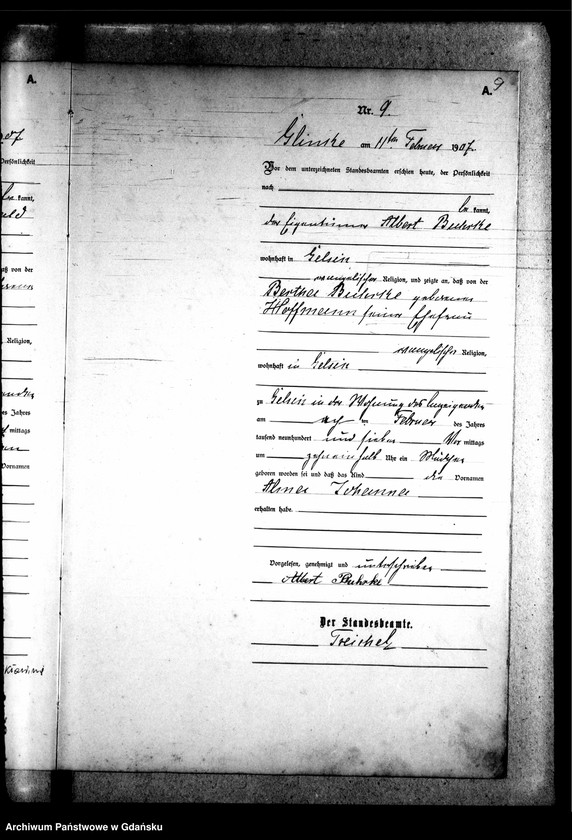 A.
9
A.
Nr. 9.
Glinke am 11ten Februar 1907.
Vor dem unterzeichneten Standesbeamten erschien heute, der Persönlichkeit
nach
be kannt,
der Eigentümer Albert Buhrke
wohnhaft in Gelsin
evangelischer Religion, und zeigte an, daß von der
Bertha Buhrke geborenen
Hoffmann seiner Ehefrau
evangelischer Religion,
wohnhaft in Gelsin
zu Gelsin in der Wohnung des Anzeigenden
am Februar des Jahres
tausend neunhundert und sieben Vor mittags
um zehneinhalb Uhr ein Mädchen
geboren worden sei und daß das Kind die Vornamen
Alma Johanna
erhalten habe.
Vorgelesen, genehmigt und unterschrieben
Albert Buhrke
Der Standesbeamte.
Treichel
07
Persönlichkeit
be kannt,
daß von der
Religion,
des Jahres
mittags
Vornamen
Archiwum Państwowe w Gdańsku